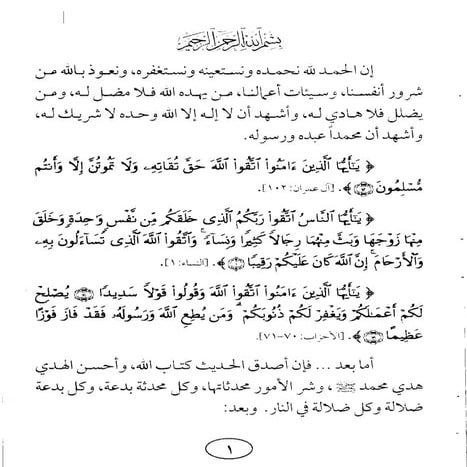 بسم الله الرحمن الرحيم
إن الحمد لله نحمده ونستعينه ونستغفره، ونعوذ بالله من
شرور أنفسنا، وسيئات أعمالنا، من يهده الله فلا مضل له، ومن
يضلل فلا هادي له، وأشهد أن لا إله إلا الله وحده لا شريك له،
وأشهد أن محمداً عبده ورسوله.
﴿ يَٰٓأَيُّهَا ٱلَّذِينَ ءَامَنُوا۟ ٱتَّقُوا۟ ٱللَّهَ حَقَّ تُقَاتِهِۦ وَلَا تَمُوتُنَّ إِلَّا وَأَنتُم
مُّسْلِمُونَ ﴿١٠٢﴾ ﴾. [آل عمران: ١٠٢].
﴿ يَٰٓأَيُّهَا ٱلنَّاسُ ٱتَّقُوا۟ رَبَّكُمُ ٱلَّذِى خَلَقَكُم مِّن نَّفْسٍ وَٰحِدَةٍ وَخَلَقَ
مِنْهَا زَوْجَهَا وَبَثَّ مِنْهُمَا رِجَالًا كَثِيرًا وَنِسَآءً ۚ وَٱتَّقُوا۟ ٱللَّهَ ٱلَّذِى تَسَآءَلُونَ بِهِۦ
وَٱلْأَرْحَامَ ۚ إِنَّ ٱللَّهَ كَانَ عَلَيْكُمْ رَقِيبًا ﴿١﴾ ﴾. [النساء: ١].
﴿ يَٰٓأَيُّهَا ٱلَّذِينَ ءَامَنُوا۟ ٱتَّقُوا۟ ٱللَّهَ وَقُولُوا۟ قَوْلًا سَدِيدًا ﴿٧٠﴾ يُصْلِحْ
لَكُمْ أَعْمَٰلَكُمْ وَيَغْفِرْ لَكُمْ ذُنُوبَكُمْ ۗ وَمَن يُطِعِ ٱللَّهَ وَرَسُولَهُۥ فَقَدْ فَازَ فَوْزًا
عَظِيمًا ﴿٧١﴾ ﴾. [الأحزاب: ٧٠-٧١].
أما بعد ... فإن أصدق الحديث كتاب الله، وأحسن الهدي
هدي محمد ﷺ، وشر الأمور محدثاتها، وكل محدثة بدعة، وكل بدعة
ضلالة وكل ضلالة في النار. وبعد:
١